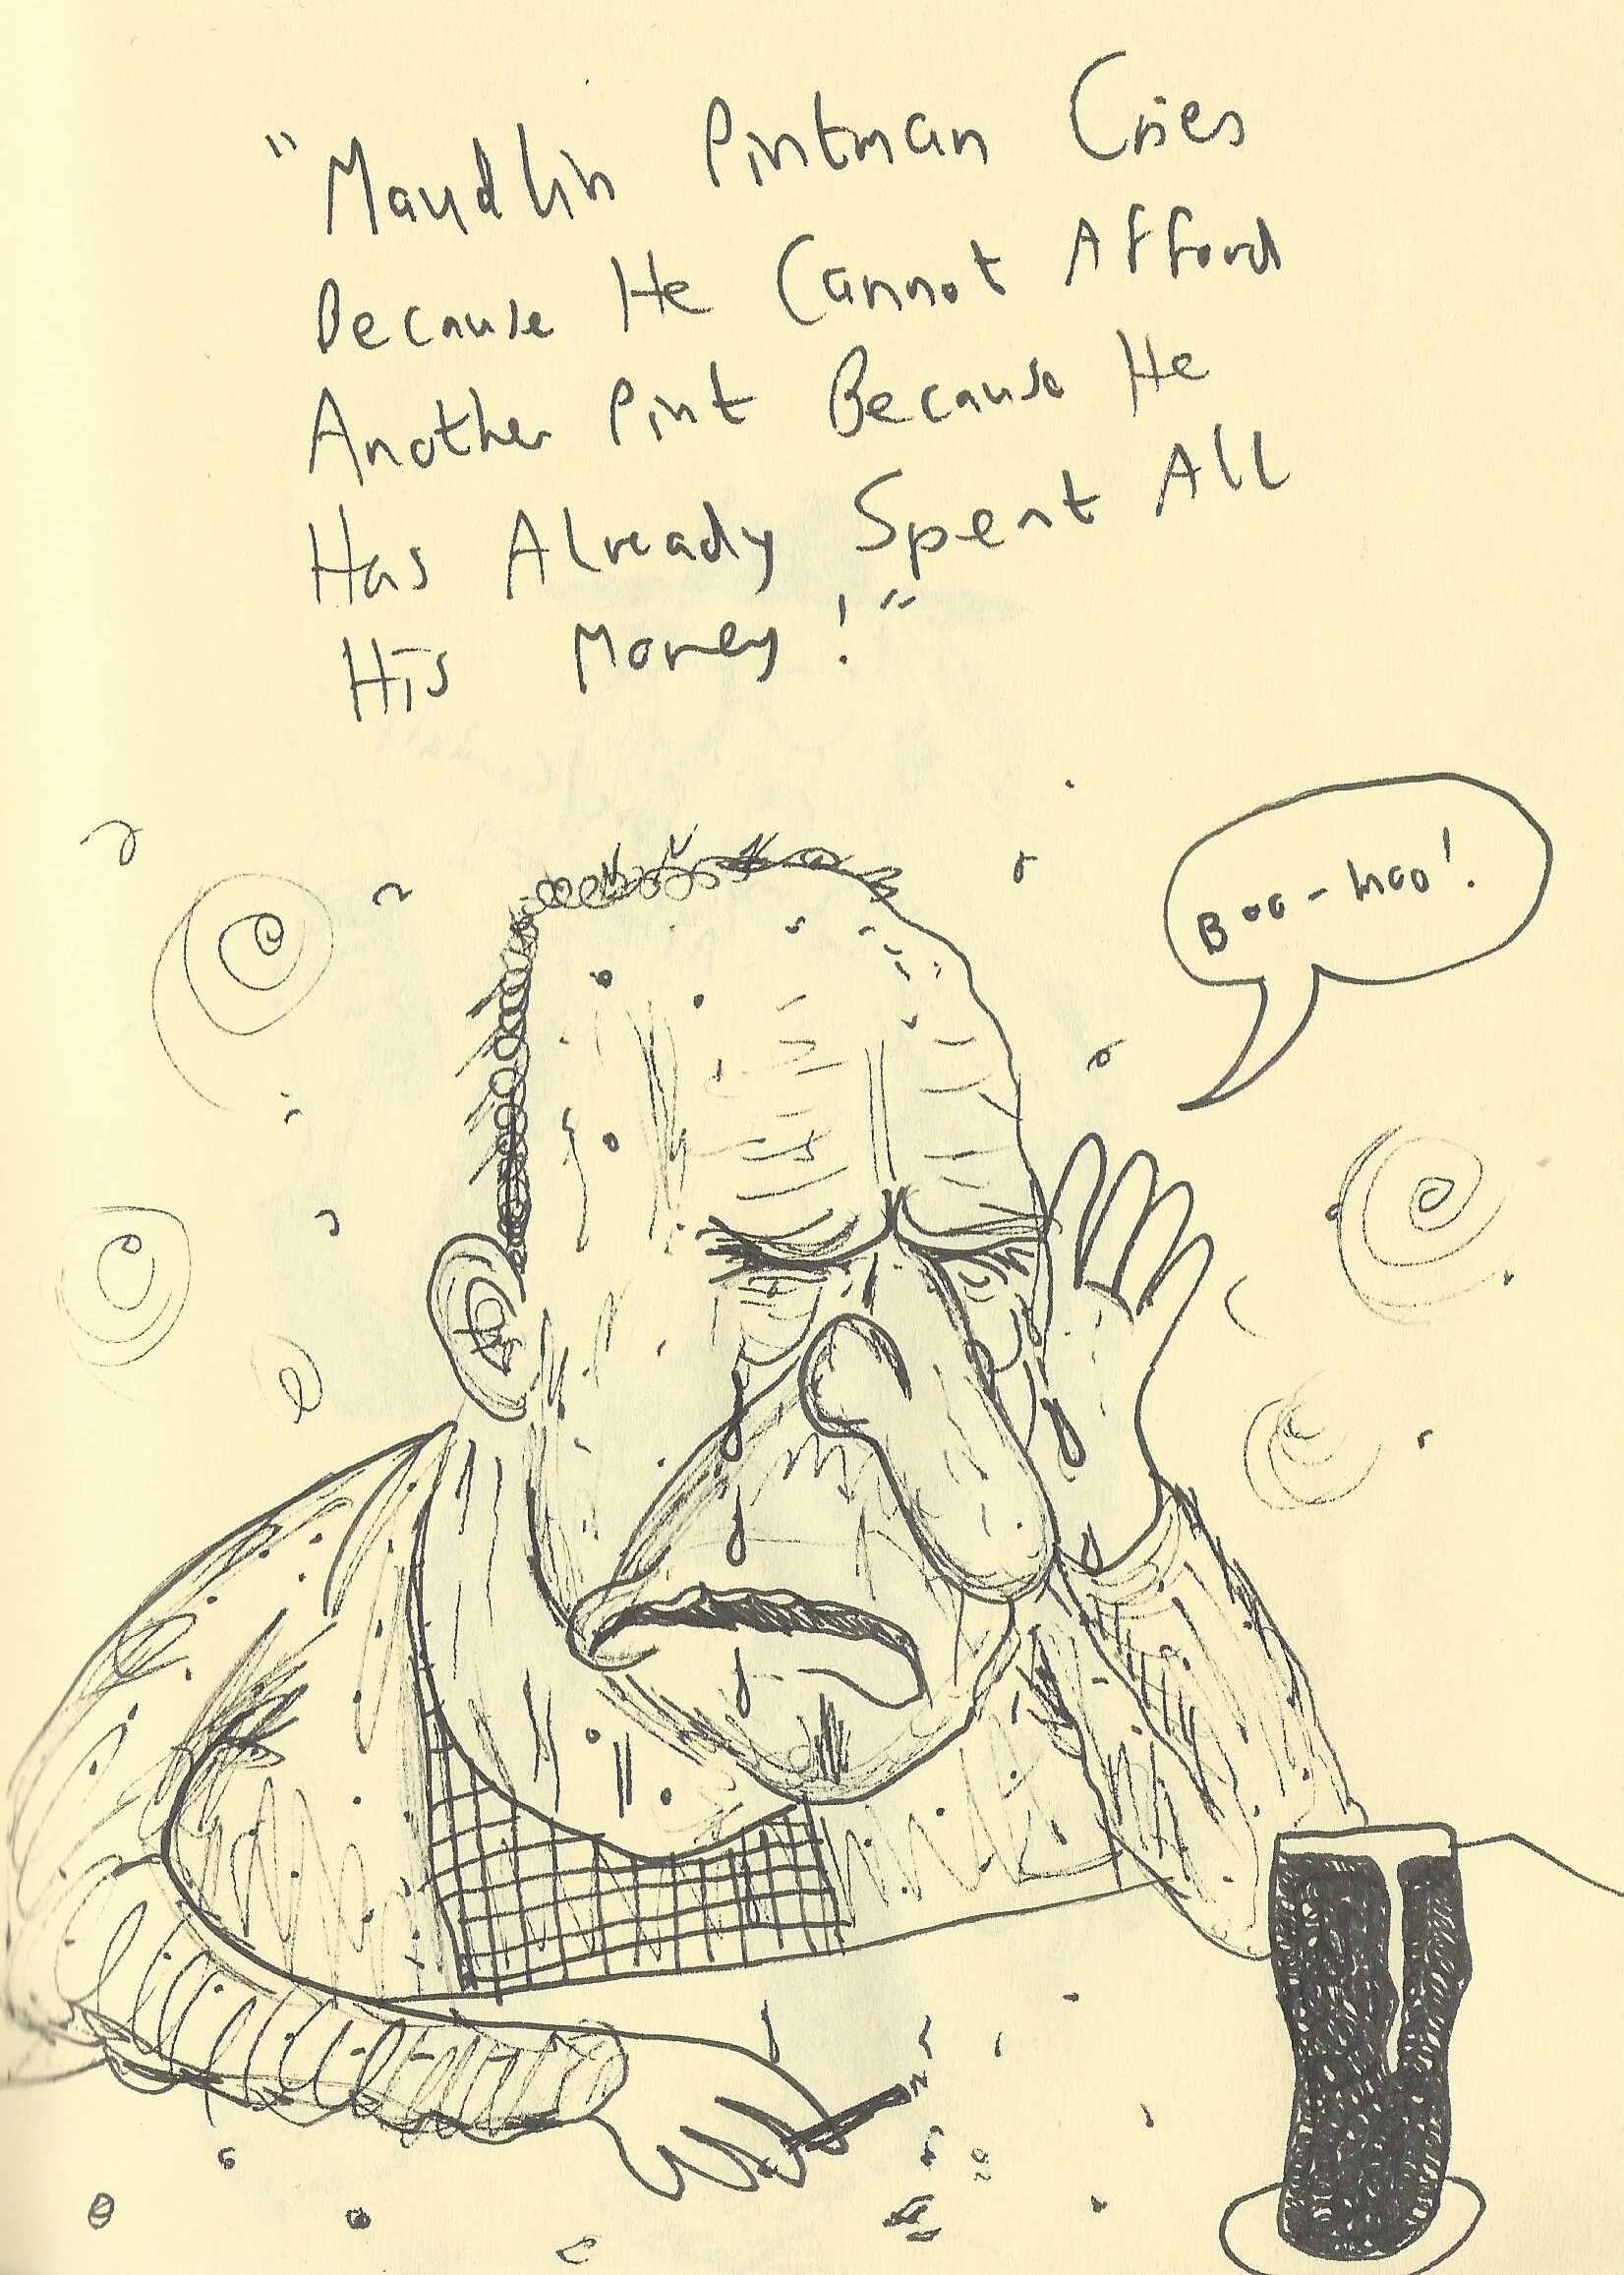 "Maudlin Pintman Cries
Because He Cannot Afford
Another Pint Because He
Has Already Spent All
His Money!"
Boo-hoo!